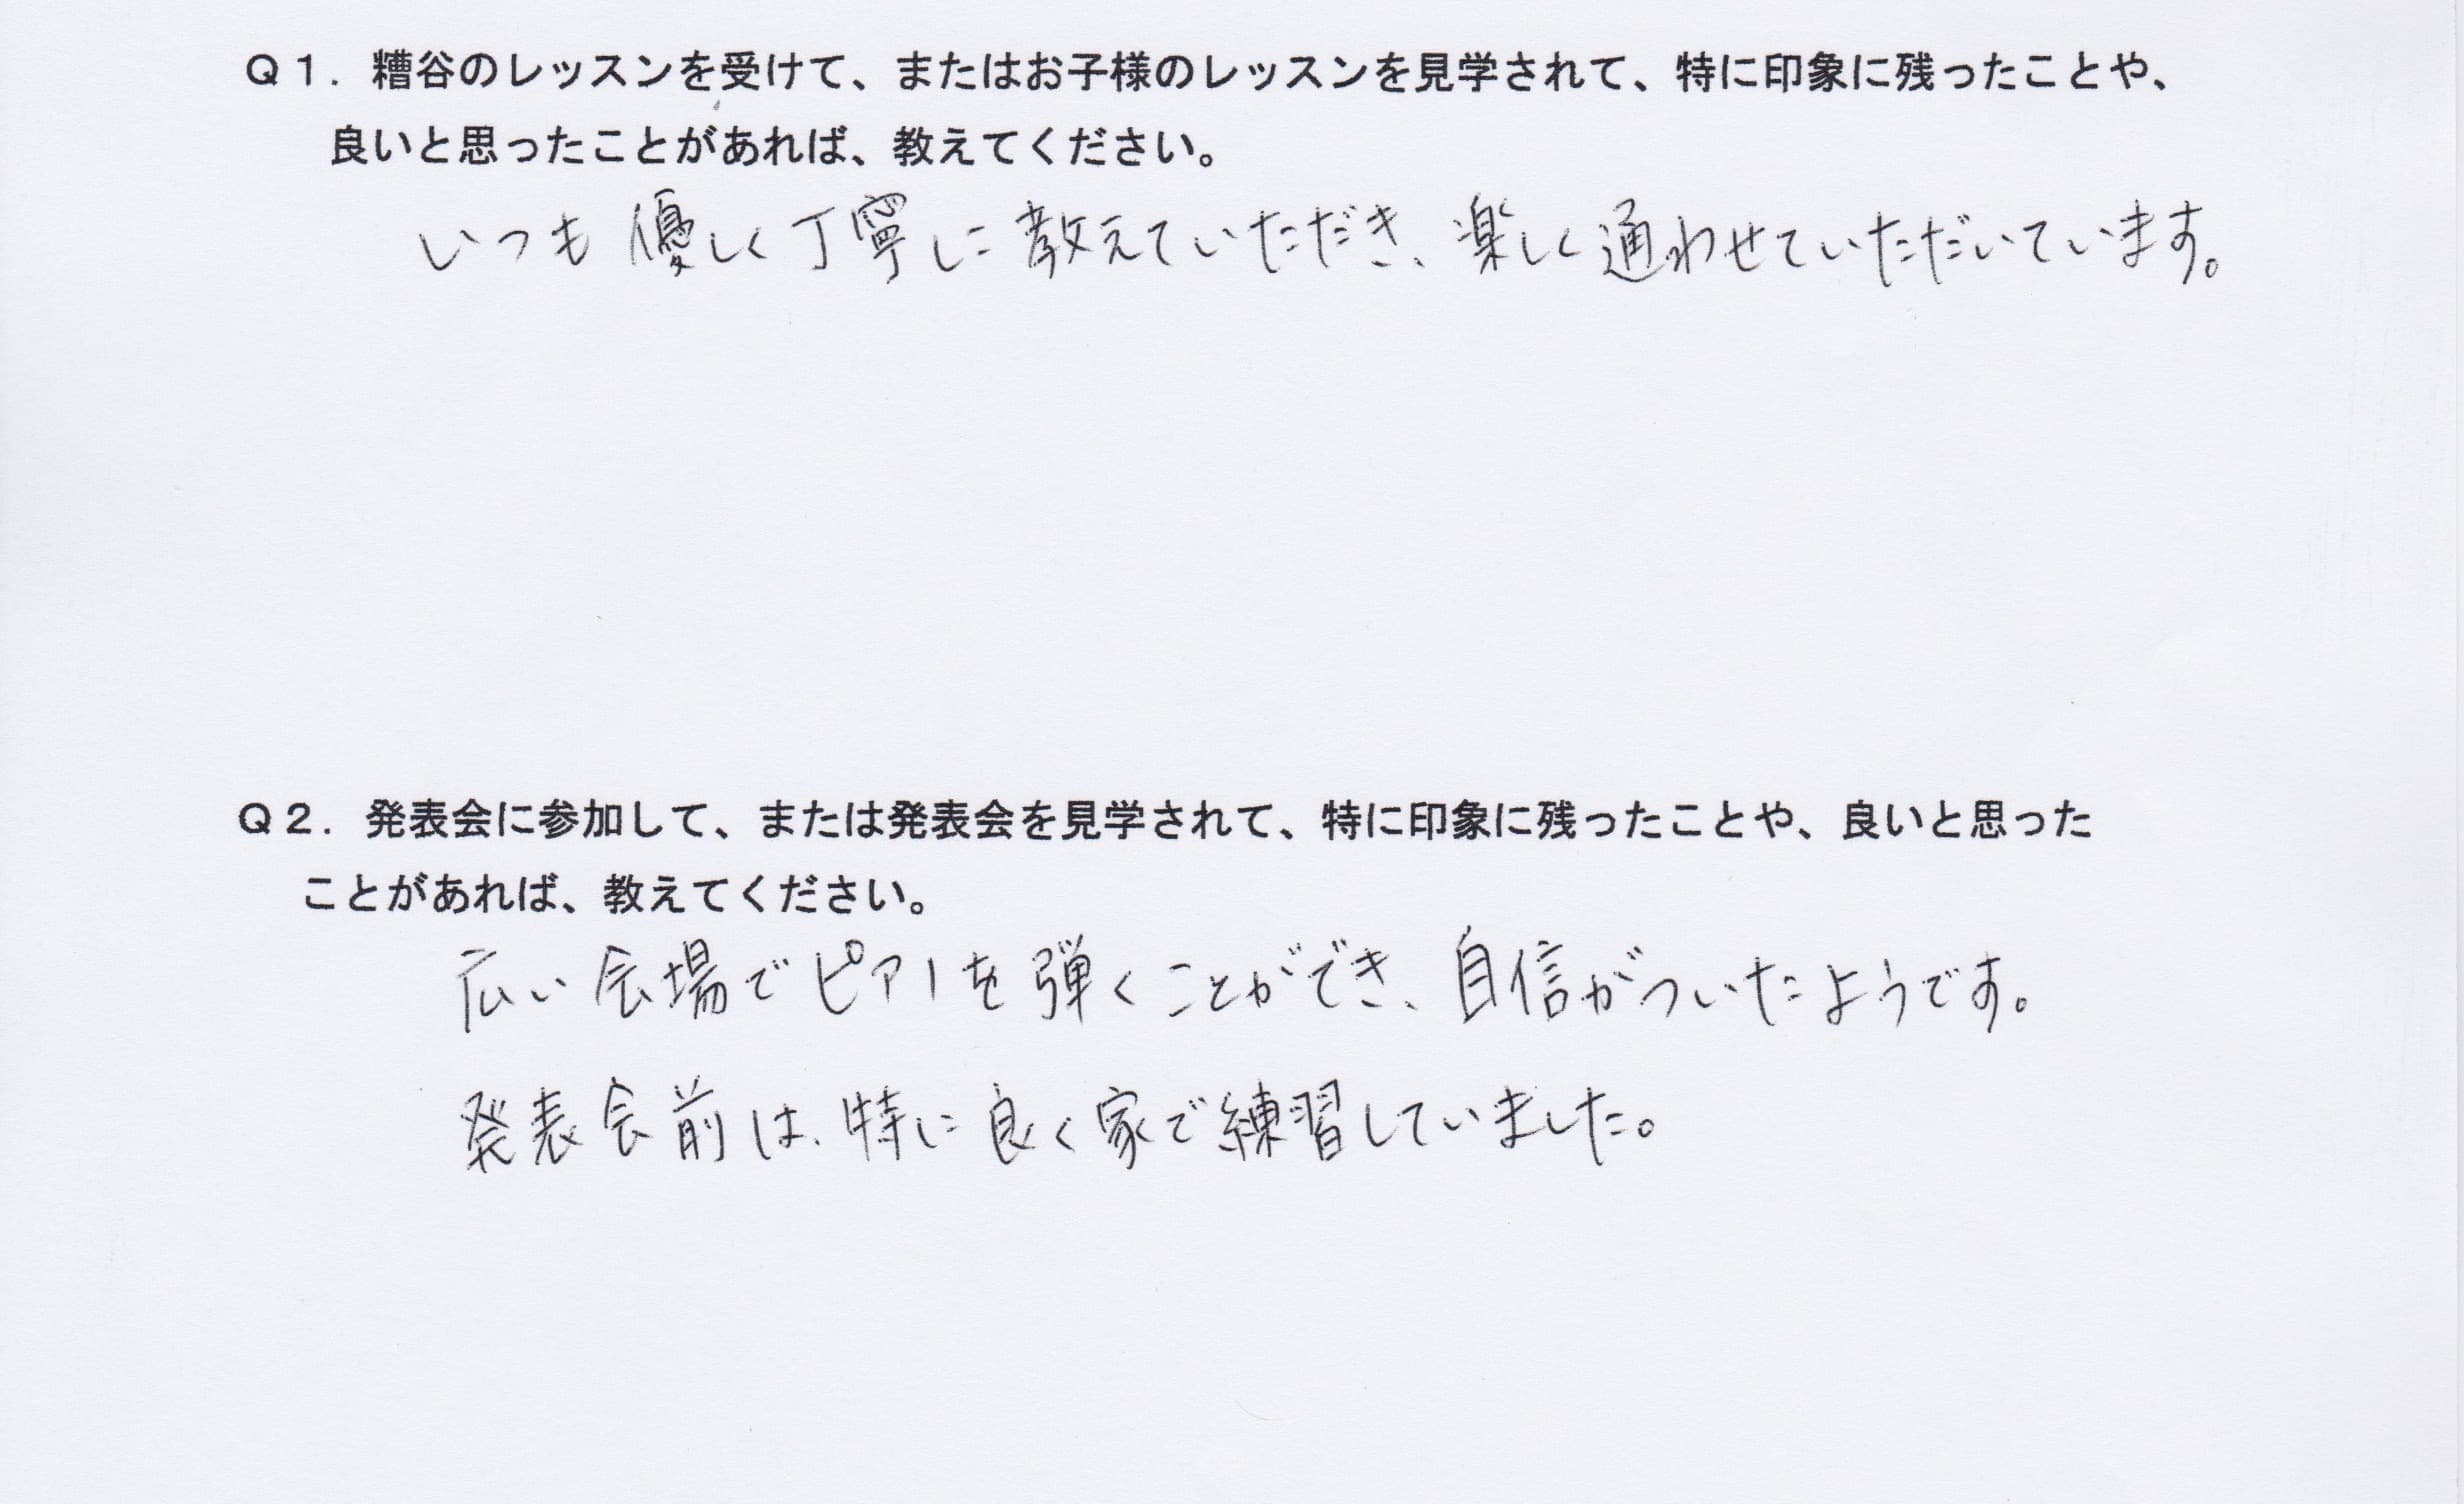 Ｑ１．糟谷のレッスンを受けて、またはお子様のレッスンを見学されて、特に印象に残ったことや、
良いと思ったことがあれば、教えてください。
いつも優しく丁寧に教えていただき、楽しく通わせていただいています。
Ｑ２．発表会に参加して、または発表会を見学されて、特に印象に残ったことや、良いと思った
ことがあれば、教えてください。
広い会場でピアノを弾くことができ、自信がついたようです。
発表会前は、特に良く家で練習していました。